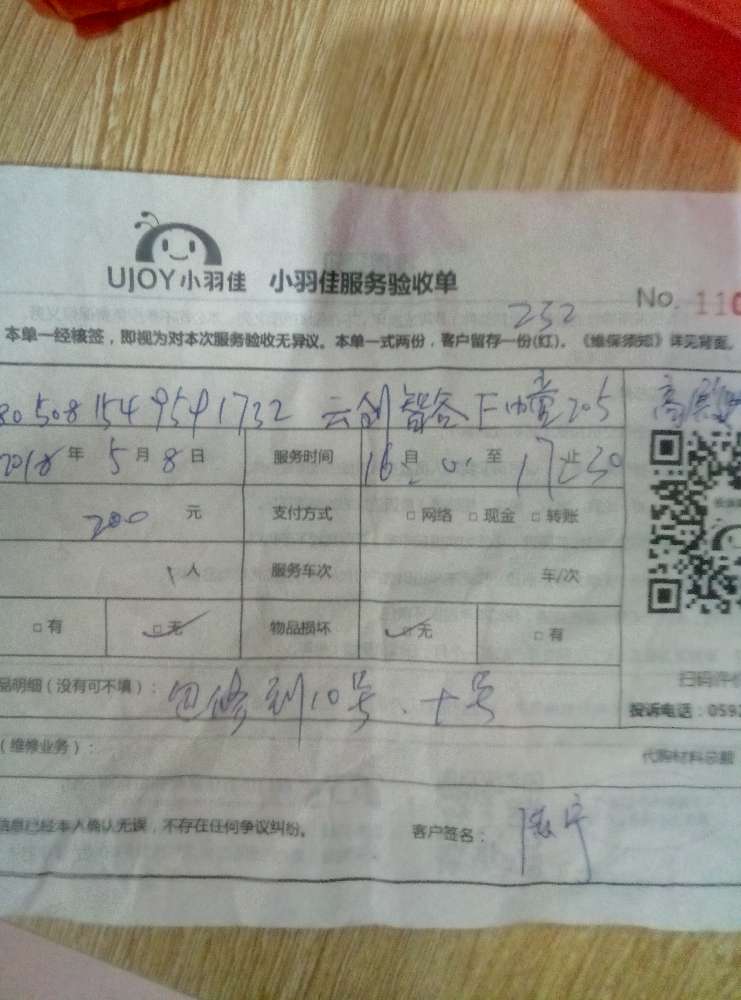 UJOY小羽佳 小羽佳服务验收单
No. 110
232
本单一经核签，即视为对本次服务验收无异议。本单一式两份，客户留存一份(红)。《维保须知》详见背面。
805081549541732 云创智谷 205
2018年5月8日 服务时间 16自 00 至 17止30
200元 支付方式 □网络 □现金 □转账
1人 服务车次 车/次
□有 □无 物品损坏 □无 □有
品明细（没有可不填）： 包修到10号、十号
扫码评价
投诉电话：0592
（维修业务）： 代购材料总额
信息已经本人确认无误，不存在任何争议纠纷。 客户签名：